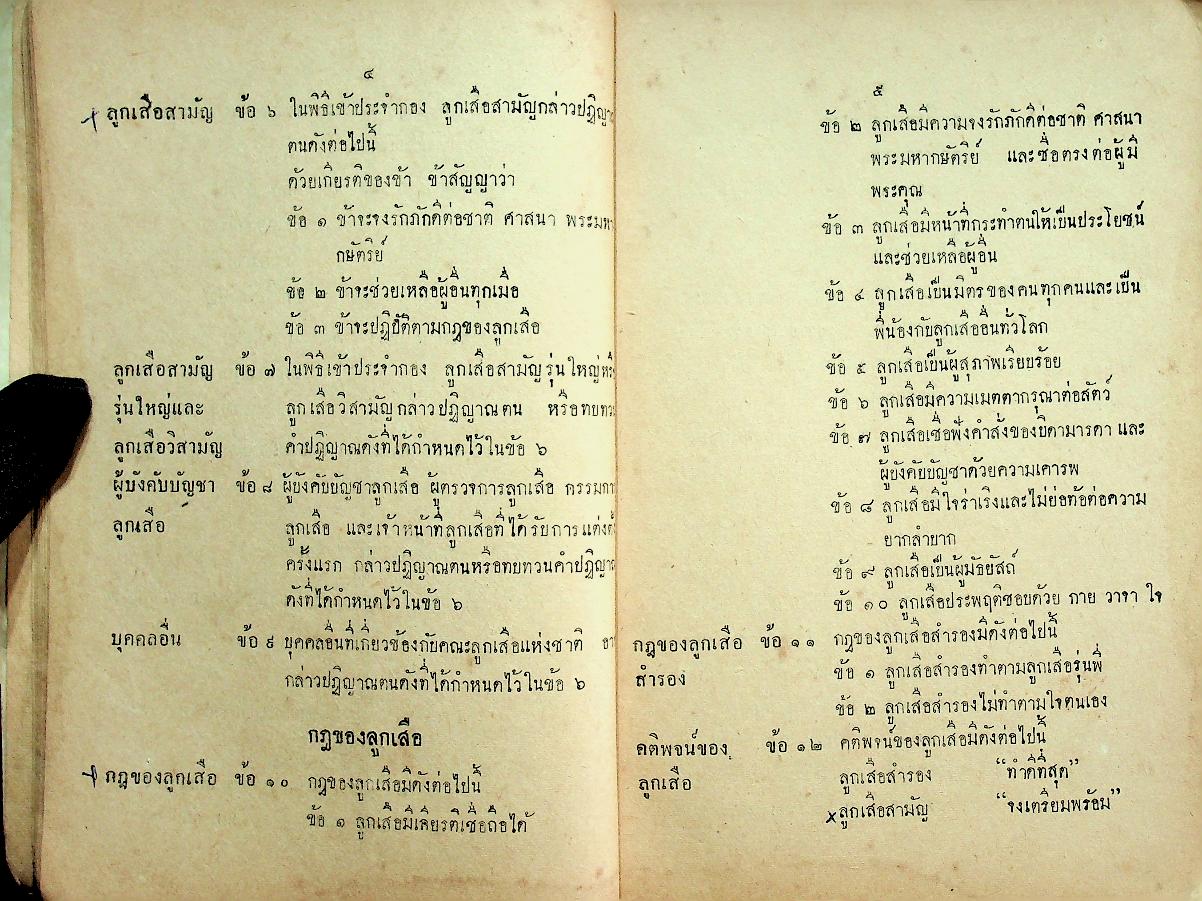 ๔
ลูกเสือสามัญ ข้อ ๖ ในพิธีเข้าประจำกอง ลูกเสือสามัญกล่าวปฏิญาณ
ตนดังต่อไปนี้
ด้วยเกียรติของข้า ข้าสัญญาว่า
ข้อ ๑ ข้าจะจงรักภักดีต่อชาติ ศาสนา พระมหา
กษัตริย์
ข้อ ๒ ข้าจะช่วยเหลือผู้อื่นทุกเมื่อ
ข้อ ๓ ข้าจะปฏิบัติตามกฎของลูกเสือ
ลูกเสือสามัญ ข้อ ๗ ในพิธีเข้าประจำกอง ลูกเสือสามัญรุ่นใหญ่หรือ
รุ่นใหญ่และ ลูกเสือวิสามัญกล่าวปฏิญาณตน หรือทยทวน
ลูกเสือวิสามัญ คำปฏิญาณดังที่ได้กำหนดไว้ในข้อ ๖
ผู้บังคับบัญชา ข้อ ๘ ผู้บังคับบัญชาลูกเสือ ผู้ตรวจการลูกเสือ กรรมการ
ลูกเสือ ลูกเสือ และเจ้าหน้าที่ลูกเสือที่ได้รับการแต่งตั้ง
ครั้งแรก กล่าวปฏิญาณตนหรือทยทวนคำปฏิญาณ
ดังที่ได้กำหนดไว้ในข้อ ๖
บุคคลอื่น ข้อ ๙ บุคคลอื่นที่เกี่ยวข้องกับคณะลูกเสือแห่งชาติ
กล่าวปฏิญาณตนดังที่ได้กำหนดไว้ในข้อ ๖
กฎของลูกเสือ
กฎของลูกเสือ ข้อ ๑๐ กฎของลูกเสือมีดังต่อไปนี้
ข้อ ๑ ลูกเสือมีเกียรติเชื่อถือได้
๕
ข้อ ๒ ลูกเสือมีความจงรักภักดีต่อชาติ ศาสนา
พระมหากษัตริย์ และซื่อตรงต่อผู้มี
พระคุณ
ข้อ ๓ ลูกเสือมีหน้าที่กระทำตนให้เป็นประโยชน์
และช่วยเหลือผู้อื่น
ข้อ ๔ ลูกเสือเป็นมิตรของคนทุกคนและเป็น
พี่น้องกับลูกเสืออื่นทั่วโลก
ข้อ ๕ ลูกเสือเป็นผู้สุภาพเรียบร้อย
ข้อ ๖ ลูกเสือมีความเมตตากรุณาต่อสัตว์
ข้อ ๗ ลูกเสือเชื่อฟังคำสั่งของบิดามารดา และ
ผู้บังคับบัญชาด้วยความเคารพ
ข้อ ๘ ลูกเสือมีใจร่าเริงและไม่ย่อท้อต่อความ
ยากลำยาก
ข้อ ๙ ลูกเสือเป็นผู้มัธยัสถ์
ข้อ ๑๐ ลูกเสือประพฤติชอบด้วย กาย วาจา ใจ
กฎของลูกเสือ ข้อ ๑๑ กฎของลูกเสือสำรองมีดังต่อไปนี้
สำรอง ข้อ ๑ ลูกเสือสำรองทำตามลูกเสือรุ่นพี่
ข้อ ๒ ลูกเสือสำรองไม่ทำตามใจตนเอง
คติพจน์ของ ข้อ ๑๒ คติพจน์ของลูกเสือมีดังต่อไปนี้
ลูกเสือ ลูกเสือสำรอง “ทำดีที่สุด”
x ลูกเสือสามัญ “จงเตรียมพร้อม”